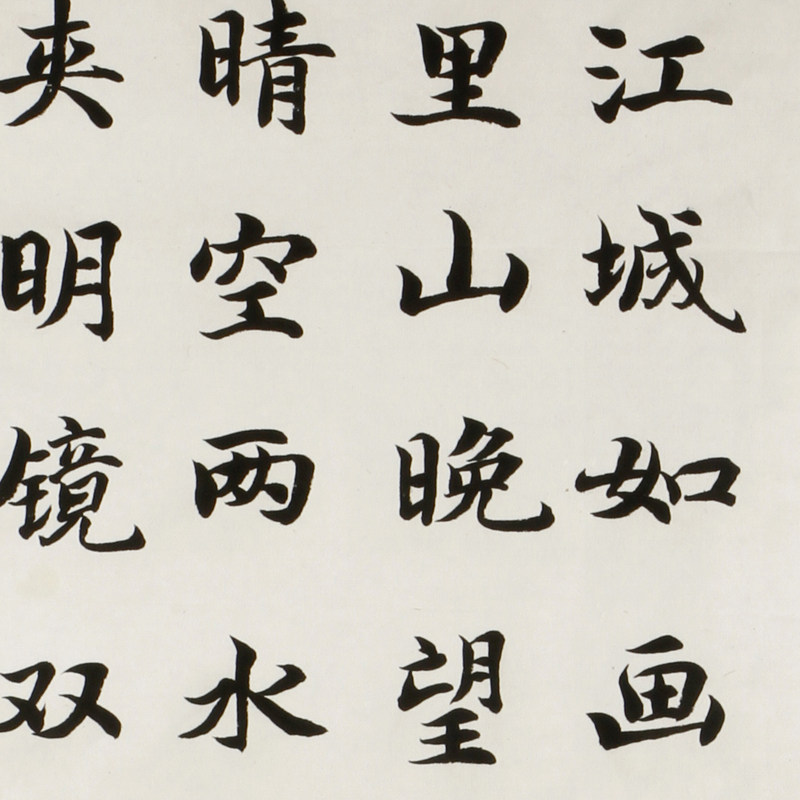 江城如画
里山晚望
晴空两水
夹明镜双